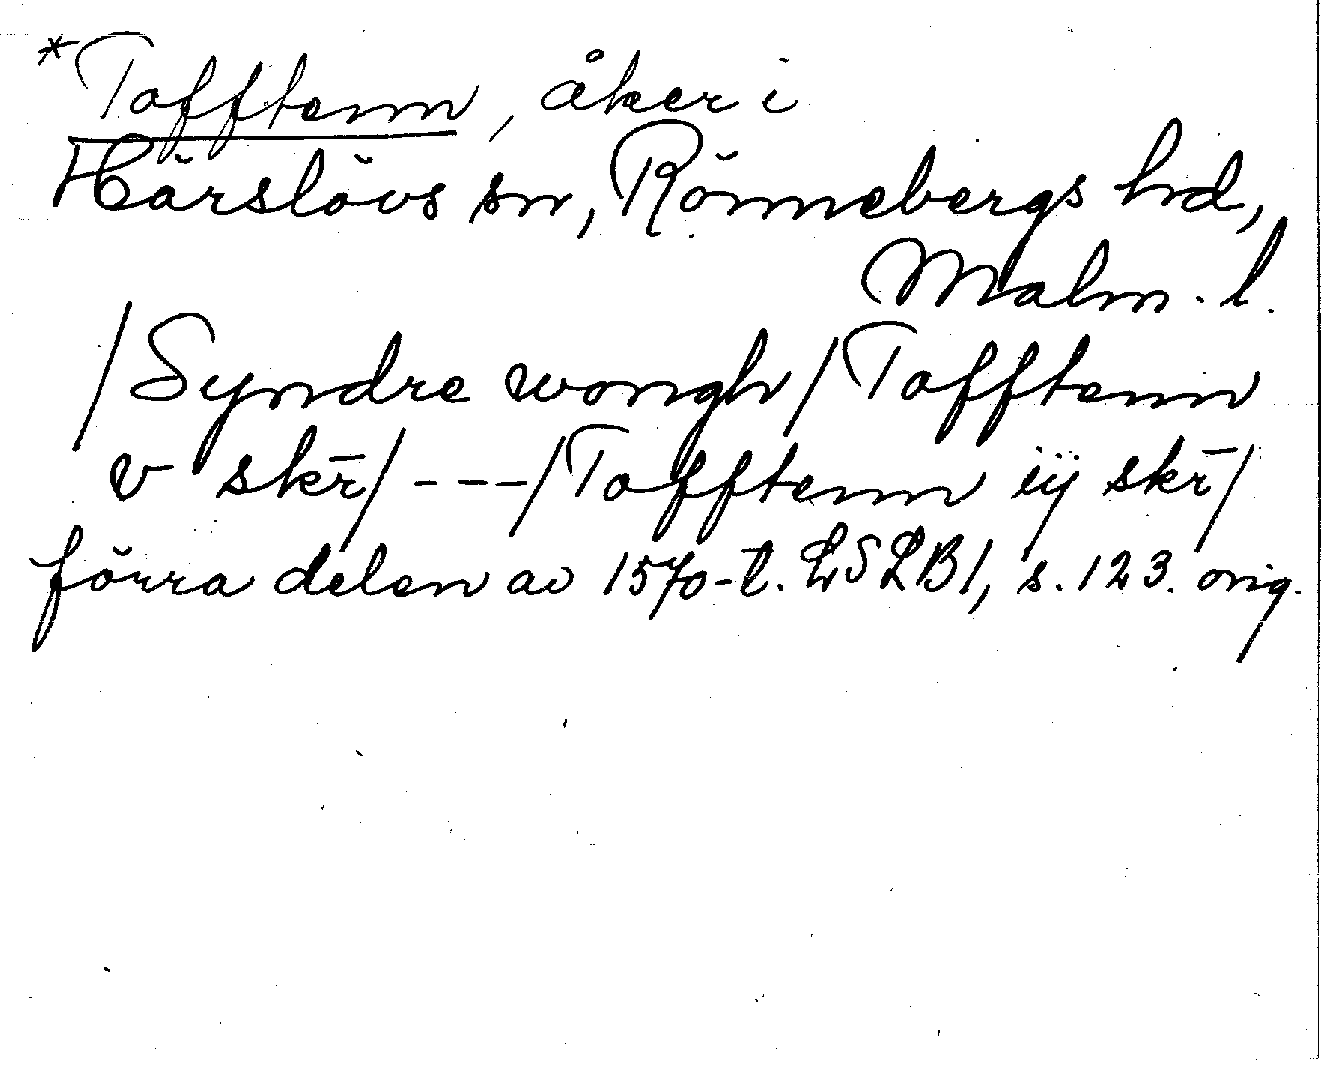 *Tofftenn, åker i
Härslövs sn, Rönnebergs hd,
Malm. l.
/Syndre wongh/Tofftenn
v skr̄/---/Tofftenn iij skr̄/
förra delen av 1570-t. LSLB1, s. 123. orig.